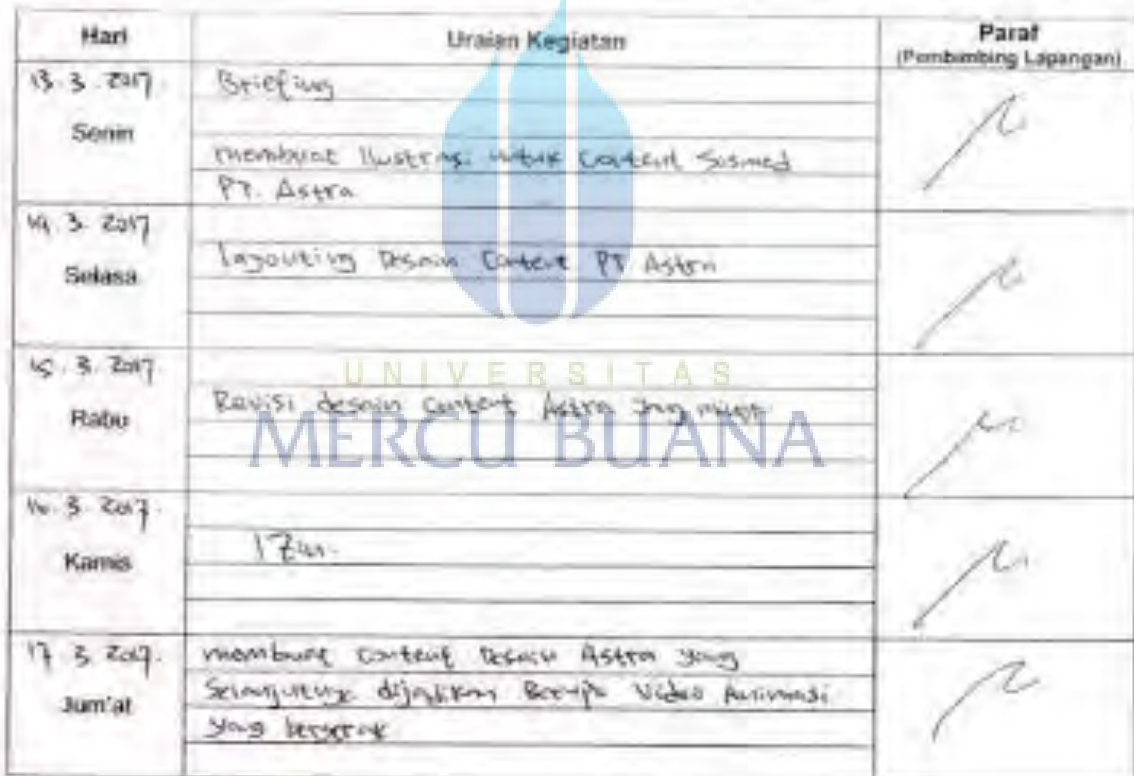 Hari Uraian Kegiatan Paraf
(Pembimbing Lapangan)
13.3.2017 Briefing
Senin
membuat Ilustrasi untuk Content Sosmed
PT. Astra
14.3.2017
Selasa layouting Desain Content PT Astra
15.3.2017
UNIVERSITAS
Rabu Revisi desain Content Astra yang
MERCU BUANA
16.3.2017
Kamis Izin.
17.3.2017. membuat Content Desain Astra yang
Jum'at Selanjutnya dijadikan Berupa Video Animasi
yang bergerak